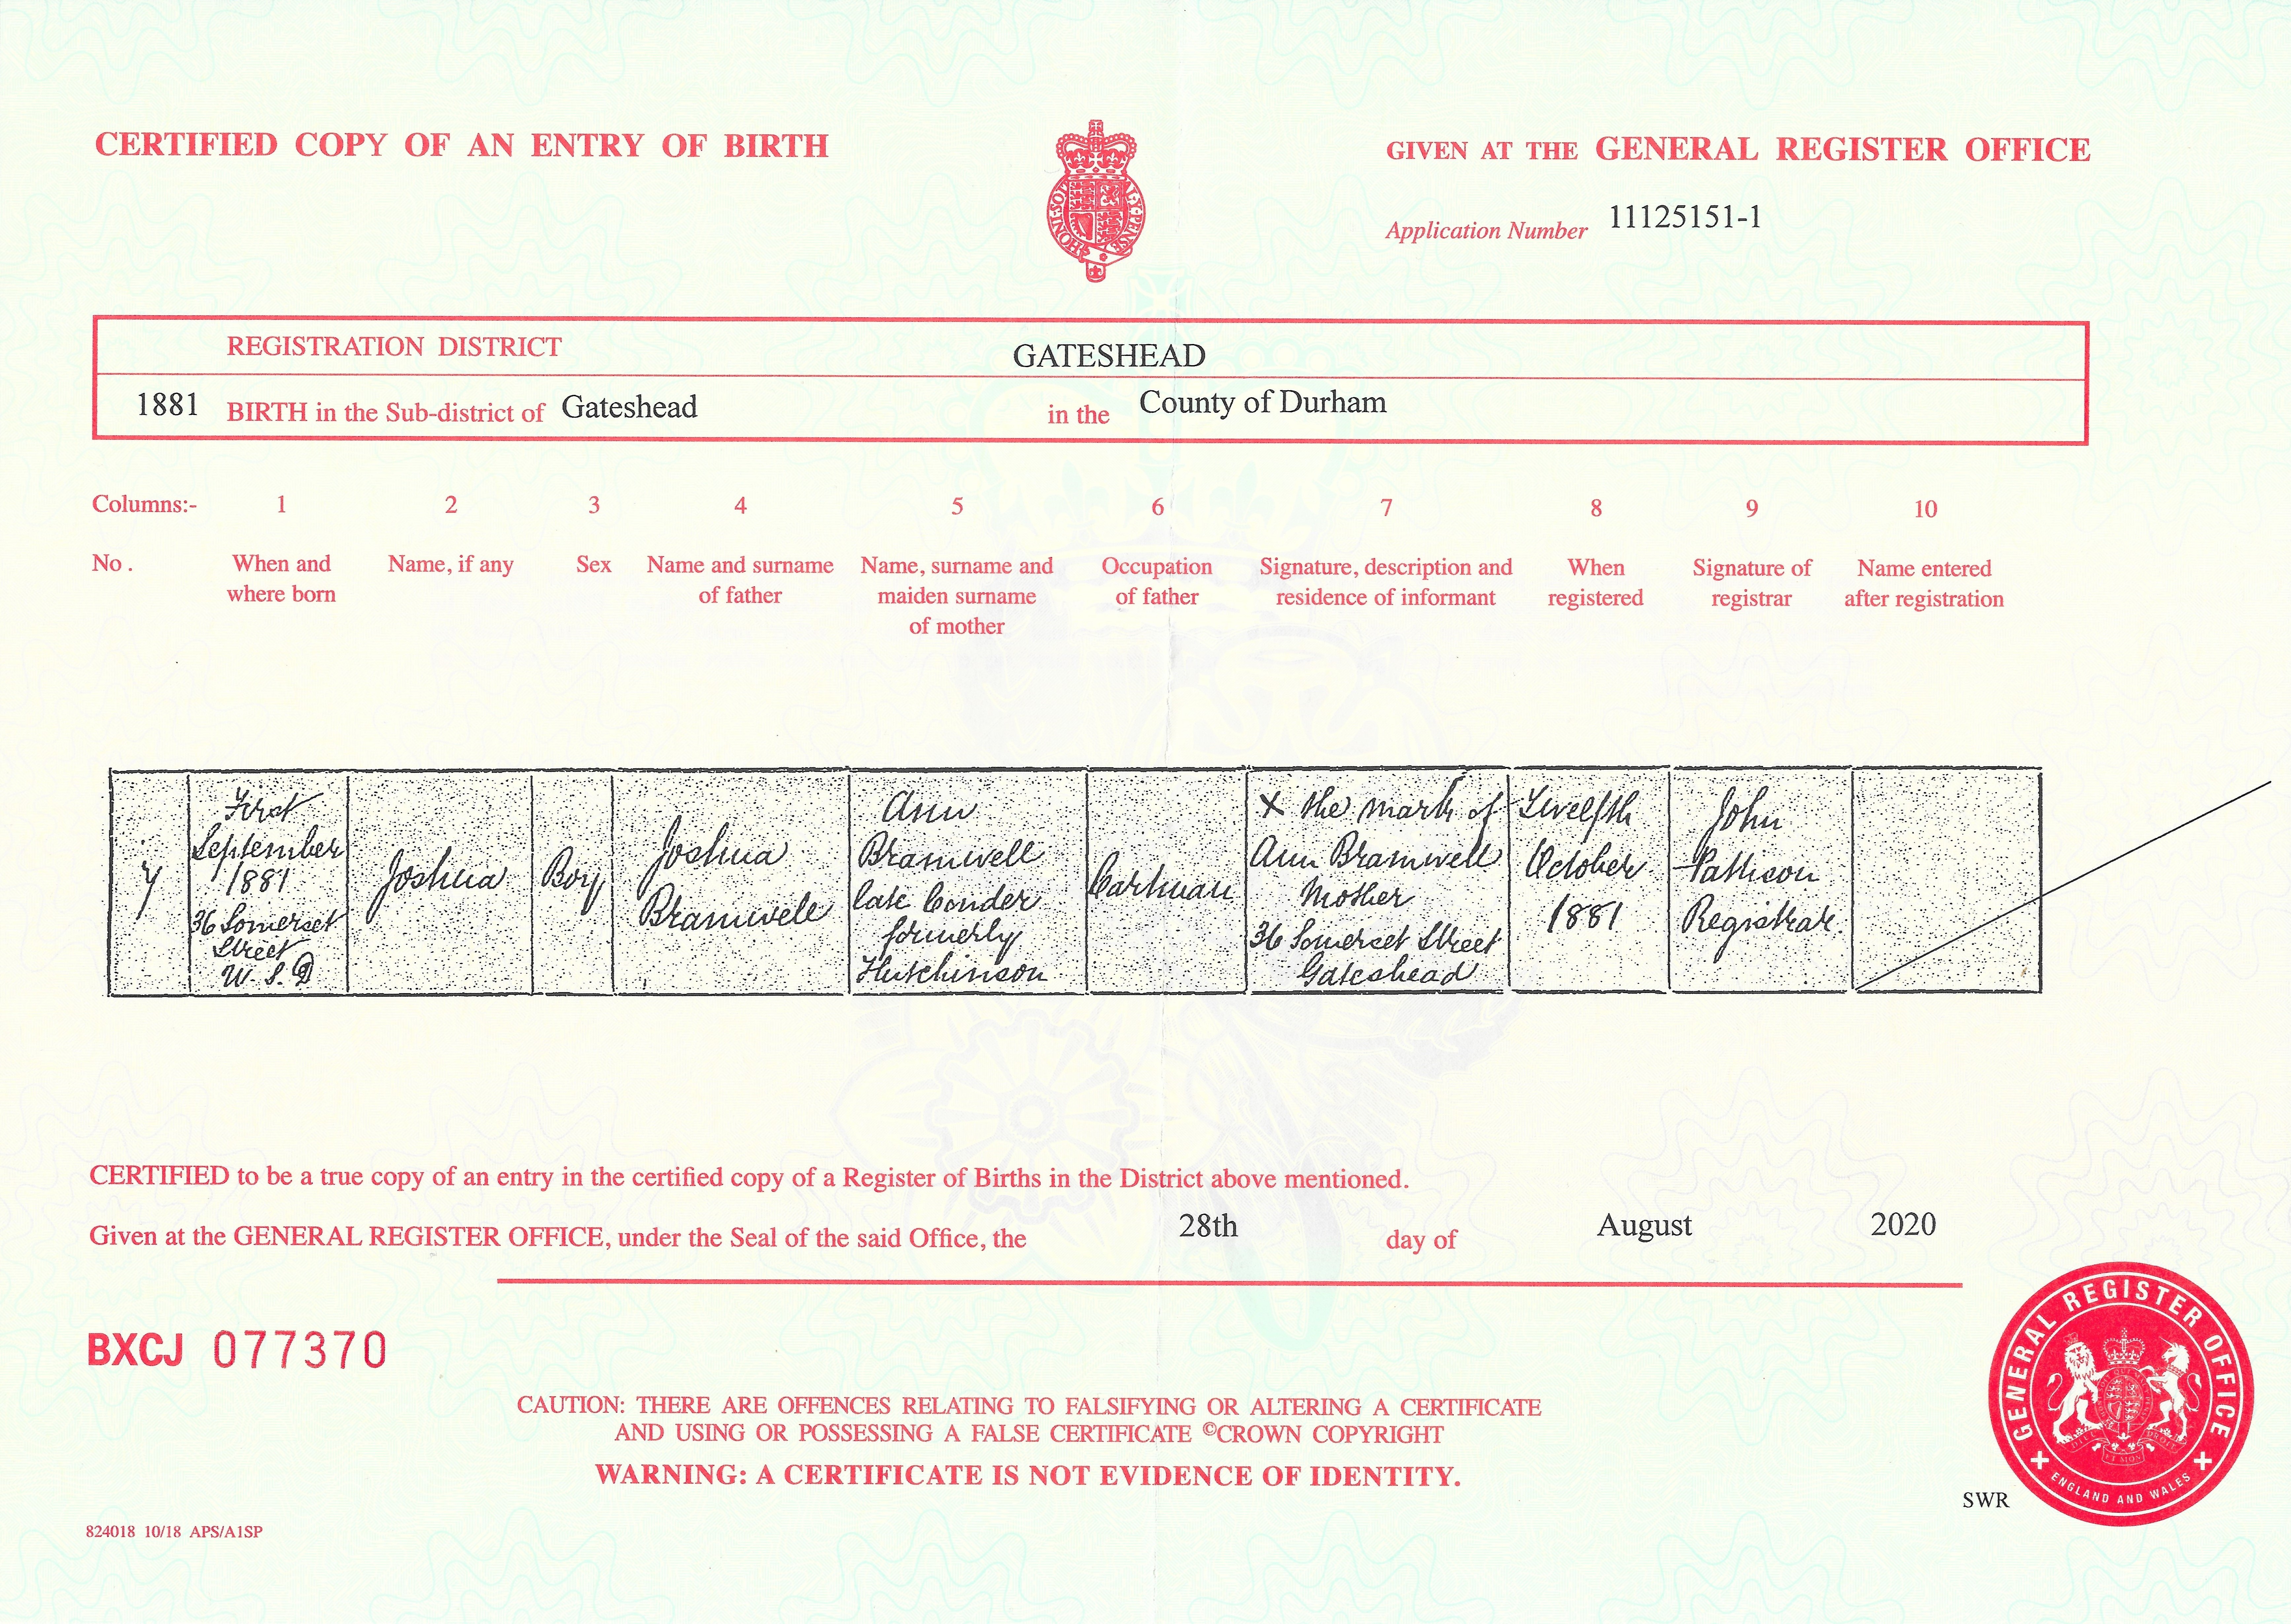 CERTIFIED COPY OF AN ENTRY OF BIRTH
GIVEN AT THE GENERAL REGISTER OFFICE
HONI SOIT Q MAL Y PENSE
Application Number 11125151-1
REGISTRATION DISTRICT GATESHEAD
1881 BIRTH in the Sub-district of Gateshead in the County of Durham
Columns:- 1 2 3 4 5 6 7 8 9 10
No. When and where born Name, if any Sex Name and surname of father Name, surname and maiden surname of mother Occupation of father Signature, description and residence of informant When registered Signature of registrar Name entered after registration
7
First
September
1881
36 Somerset
Street
W. S. D
Joshua
Boy
Joshua
Bramwell
Ann
Bramwell
late Conder
formerly
Hutchinson
Cartman
X the mark of
Ann Bramwell
Mother
36 Somerset Street
Gateshead
Twelfth
October
1881
John
Pattison
Registrar.
CERTIFIED to be a true copy of an entry in the certified copy of a Register of Births in the District above mentioned.
Given at the GENERAL REGISTER OFFICE, under the Seal of the said Office, the 28th day of August 2020
BXCJ 077370
CAUTION: THERE ARE OFFENCES RELATING TO FALSIFYING OR ALTERING A CERTIFICATE
AND USING OR POSSESSING A FALSE CERTIFICATE ©CROWN COPYRIGHT
WARNING: A CERTIFICATE IS NOT EVIDENCE OF IDENTITY.
GENERAL REGISTER OFFICE
ENGLAND AND WALES
SWR
824018 10/18 APS/A1SP